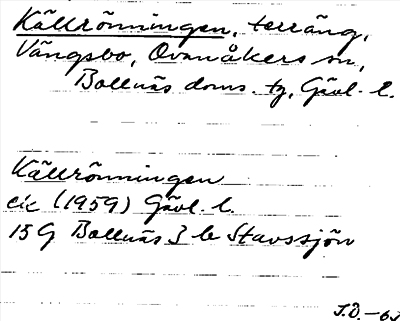 Källrönningen, terräng,
Vängsbo, Ovanåkers sn,
Bollnäs doms. tg, Gävl. l.
Källrönningen
ek (1959) Gävl. l.
15 G Bollnäs 3 b Stavssjön
J.D. -63